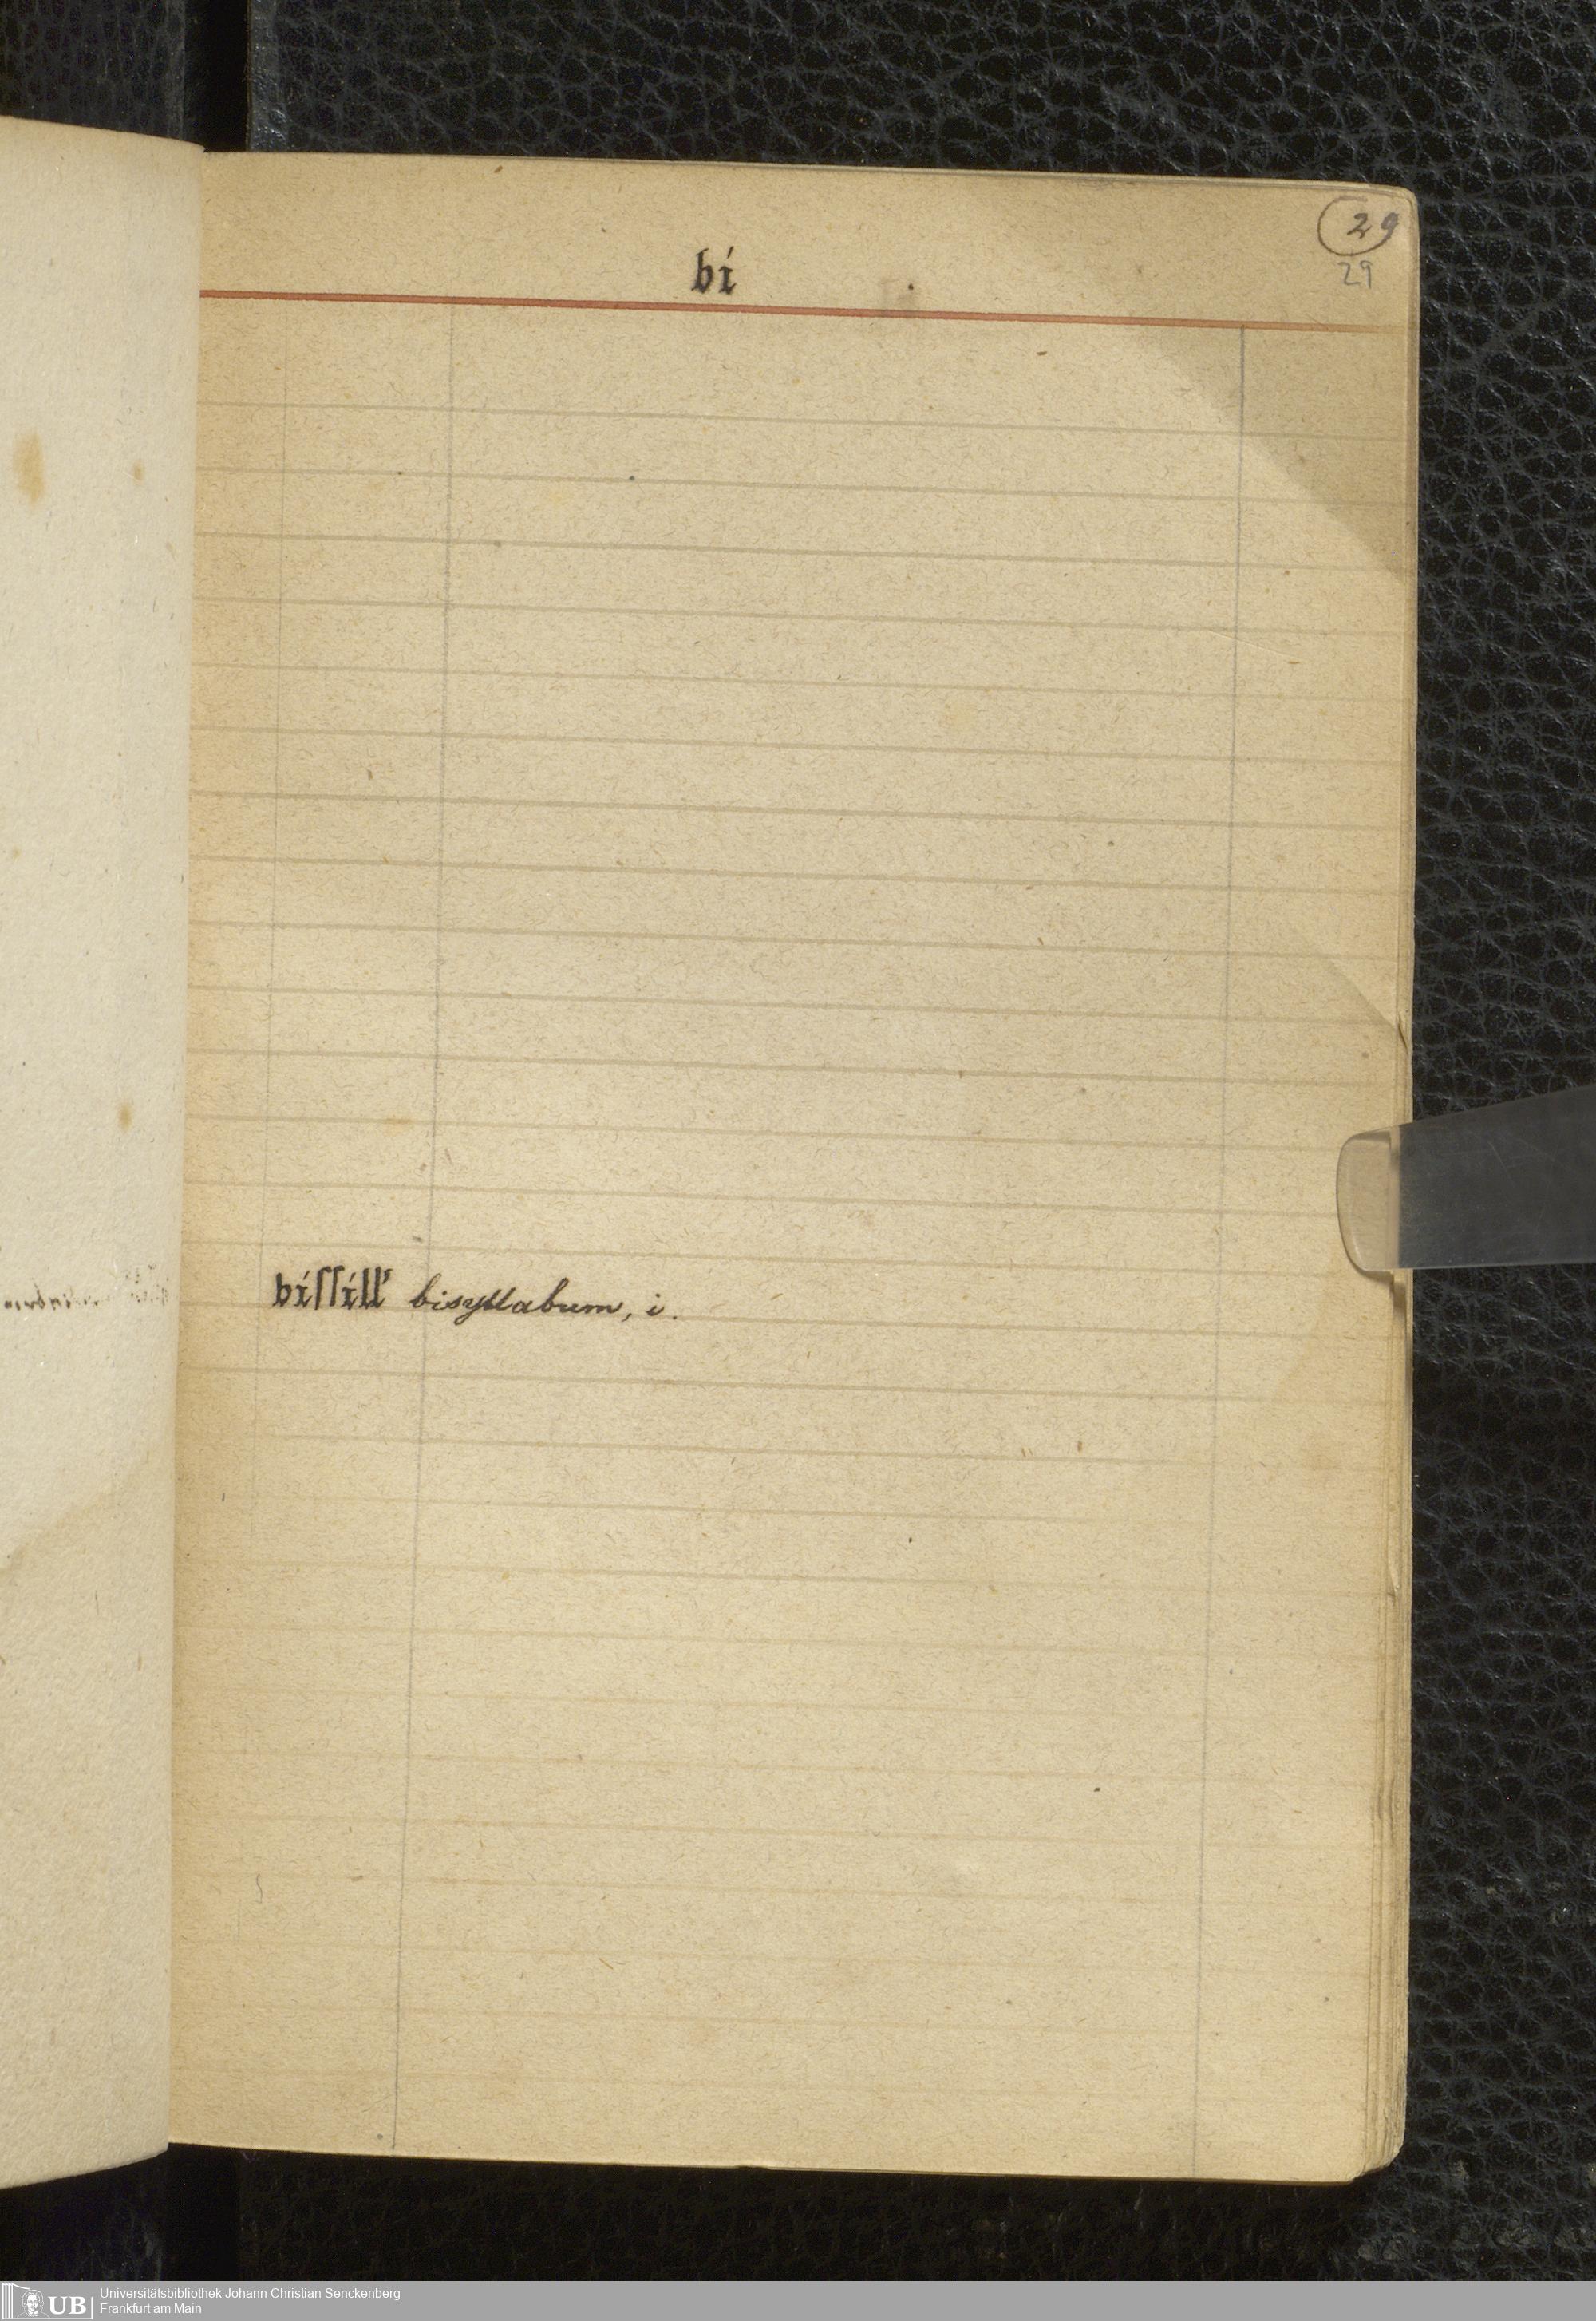 29
29
bí
bíſſíll' bisyllabum, i.
UB
Universitätsbibliothek Johann Christian Senckenberg
Frankfurt am Main